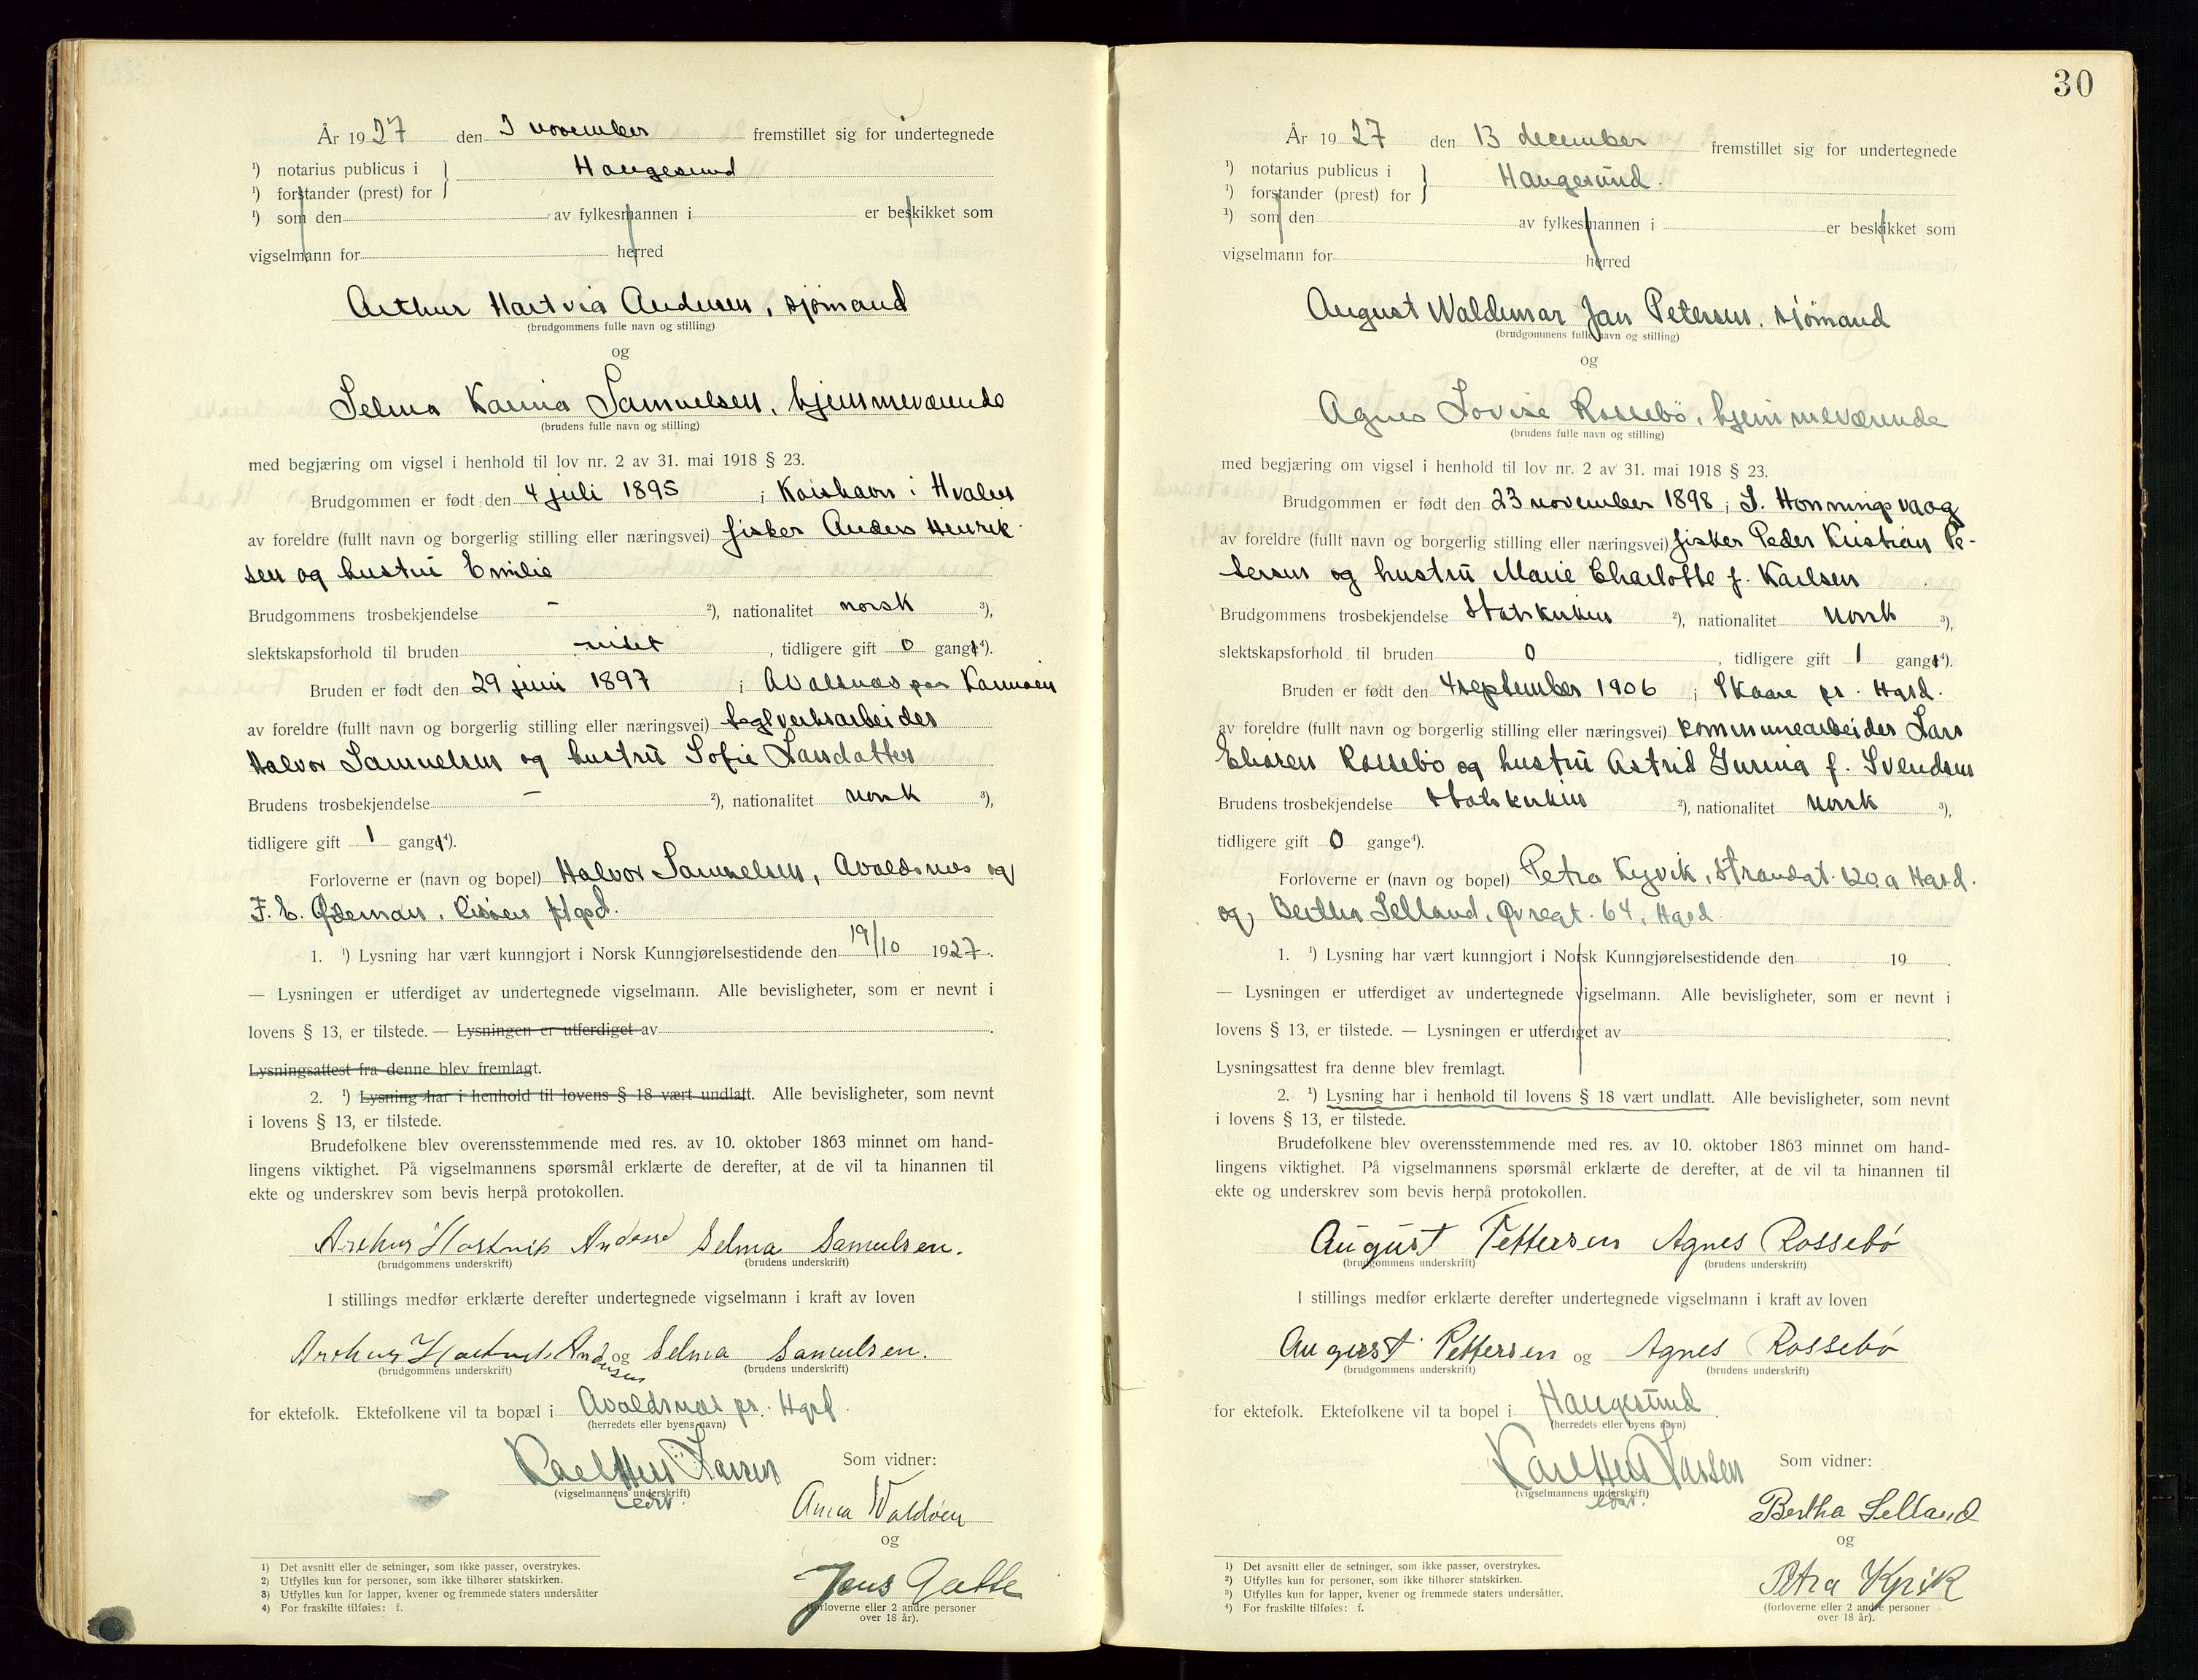 År 1927 den 3 november fremstillet sig for undertegnede
¹) notarius publicus i } Haugesund
¹) forstander (prest) for
¹) som den av fylkesmannen i er beskikket som
vigselmann for herred
Arthur Hartvig Andersen, sjømand
(brudgommens fulle navn og stilling)
og
Selma Karina Samuelsen, hjemmeværende
(brudens fulle navn og stilling)
med begjæring om vigsel i henhold til lov nr. 2 av 31. mai 1918 § 23.
Brudgommen er født den 4 juli 1895 i Hvaler
av foreldre (fullt navn og borgerlig stilling eller næringsvei) fisker Anders Henrik-
sen og hustru Emilie
Brudgommens trosbekjendelse - ²), nationalitet norsk ³),
slektskapsforhold til bruden intet, tidligere gift 0 gange⁴).
Bruden er født den 29 juni 1897 i Avalsnæs paa Karmøen
av foreldre (fullt navn og borgerlig stilling eller næringsvei) teglverksarbeider
Halvor Samuelsen og hustru Sofie Larsdatter
Brudens trosbekjendelse - ²), nationalitet norsk ³),
tidligere gift 1 gange⁴).
Forloverne er (navn og bopel) Halvor Samuelsen, Avaldsnes og
F. E. Hgsd.
1. ¹) Lysning har vært kunngjort i Norsk Kunngjørelsestidende den 19/10 1927.
— Lysningen er utferdiget av undertegnede vigselmann. Alle bevisligheter, som er nevnt i
lovens § 13, er tilstede. — Lysningen er utferdiget av
Lysningsattest fra denne blev fremlagt.
2. ¹) Lysning har i henhold til lovens § 18 vært undlatt. Alle bevisligheter, som nevnt
i lovens § 13, er tilstede.
Brudefolkene blev overensstemmende med res. av 10. oktober 1863 minnet om hand-
lingens viktighet. På vigselmannens spørsmål erklærte de derefter, at de vil ta hinannen til
ekte og underskrev som bevis herpå protokollen.
Arthur Hartvik Andersen Selma Samulsen.
(brudgommens underskrift) (brudens underskrift)
I stillings medfør erklærte derefter undertegnede vigselmann i kraft av loven
Arthur Hartvik Andersen og Selma Samulsen.
(brudgommens underskrift) (brudens underskrift)
for ektefolk. Ektefolkene vil ta bopæl i Avaldsnes pr. Hgsd.
(herredets eller byens navn)
Karl Hess Larsen
(vigselmannens underskrift)
Som vidner:
Anna Valdøen
og
Jens
(forloverne eller 2 andre personer
over 18 år).
1) Det avsnitt eller de setninger, som ikke passer, overstrykes.
2) Utfylles kun for personer, som ikke tilhører statskirken.
3) Utfylles kun for lapper, kvener og fremmede staters undersåtter
4) For fraskilte tilføies: f.
30
År 1927 den 13 december fremstillet sig for undertegnede
¹) notarius publicus i } Haugesund.
¹) forstander (prest) for
¹) som den av fylkesmannen i er beskikket som
vigselmann for herred
August Waldemar Jan Petersen, sjømand
(brudgommens fulle navn og stilling)
og
Agnes Lovise Rossebø, hjemmeværende
(brudens fulle navn og stilling)
med begjæring om vigsel i henhold til lov nr. 2 av 31. mai 1918 § 23.
Brudgommen er født den 23 november 1898 i S. Honningsvaag
av foreldre (fullt navn og borgerlig stilling eller næringsvei) fisker Peder Kristian Pe-
tersen og hustru Marie Charlotte f. Karlsen
Brudgommens trosbekjendelse Statskirken ²), nationalitet norsk ³),
slektskapsforhold til bruden 0, tidligere gift 1 gange⁴).
Bruden er født den 4 september 1906 i Skaare pr. Hgsd.
av foreldre (fullt navn og borgerlig stilling eller næringsvei) kommunearbeider Lars
Rossebø og hustru Astrid Gurina f. Svendsen
Brudens trosbekjendelse Statskirken ²), nationalitet norsk ³),
tidligere gift 0 gange⁴).
Forloverne er (navn og bopel) Petra Kyvik, Strandgt. 120a Hgsd.
og Bertha Selland, Øvregt. 64, Hgsd
1. ¹) Lysning har vært kunngjort i Norsk Kunngjørelsestidende den 19 .
— Lysningen er utferdiget av undertegnede vigselmann. Alle bevisligheter, som er nevnt i
lovens § 13, er tilstede. — Lysningen er utferdiget av
Lysningsattest fra denne blev fremlagt.
2. ¹) Lysning har i henhold til lovens § 18 vært undlatt. Alle bevisligheter, som nevnt
i lovens § 13, er tilstede.
Brudefolkene blev overensstemmende med res. av 10. oktober 1863 minnet om hand-
lingens viktighet. På vigselmannens spørsmål erklærte de derefter, at de vil ta hinannen til
ekte og underskrev som bevis herpå protokollen.
August Pettersen Agnes Rossebó
(brudgommens underskrift) (brudens underskrift)
I stillings medfør erklærte derefter undertegnede vigselmann i kraft av loven
August Pettersen og Agnes Rossebó
(brudgommens underskrift) (brudens underskrift)
for ektefolk. Ektefolkene vil ta bopel i Haugesund.
(herredets eller byens navn)
Karl Hess Larsen
(vigselmannens underskrift)
Som vidner:
Bertha Selland
og
Petra Kyvik
(forloverne eller 2 andre personer
over 18 år).
1) Det avsnitt eller de setninger, som ikke passer, overstrykes.
2) Utfylles kun for personer, som ikke tilhører statskirken.
3) Utfylles kun for lapper, kvener og fremmede staters undersåtter.
4) For fraskilte tilføies: f.